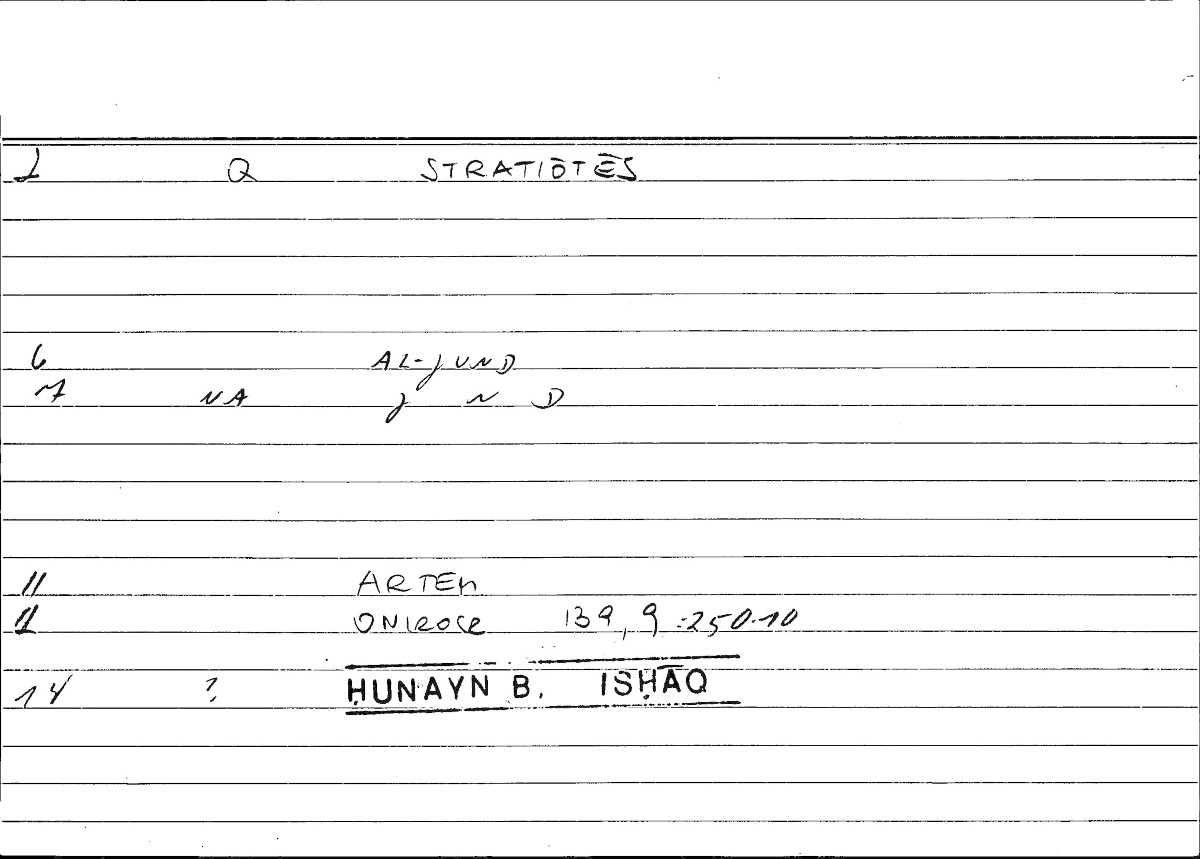 2 Q STRATIŌTĒS
6 AL-JUND
7 NA J N D
11 ARTEM
12 ONIROCR 139, 9 :250.10
14 ? ḤUNAYN B. ISḤĀQ